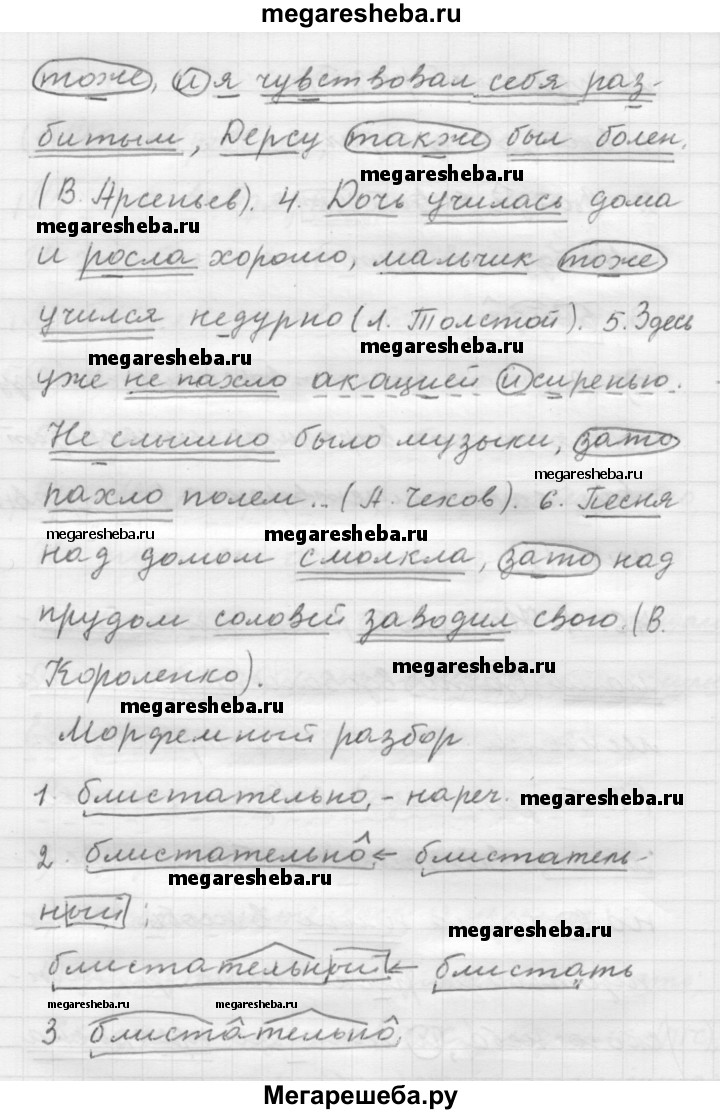 megaresheba.ru
тоже, и я чувствовал себя раз-
битым, Дерсу также был болен.
megaresheba.ru
(В. Арсеньев). 4. Дочь училась дома
megaresheba.ru
и росла хорошо, мальчик тоже
учился недурно (Л. Толстой). 5. Здесь
megaresheba.ru megaresheba.ru
уже не пахло акацией и сиренью.
Не слышно было музыки, зато
megaresheba.ru
пахло полем... (А. Чехов). 6. Песня
megaresheba.ru megaresheba.ru
над домом смолкла, зато над
прудом соловей заводил свою. (В.
megaresheba.ru
Короленко).
megaresheba.ru
Морфемный разбор
1. блистательно, - нареч. megaresheba.ru
2. блистательно ← блистатель-
megaresheba.ru
ный
megaresheba.ru
блистательный ← блистать
megaresheba.ru megaresheba.ru
3 блистательно,
Мегарешеба.ру